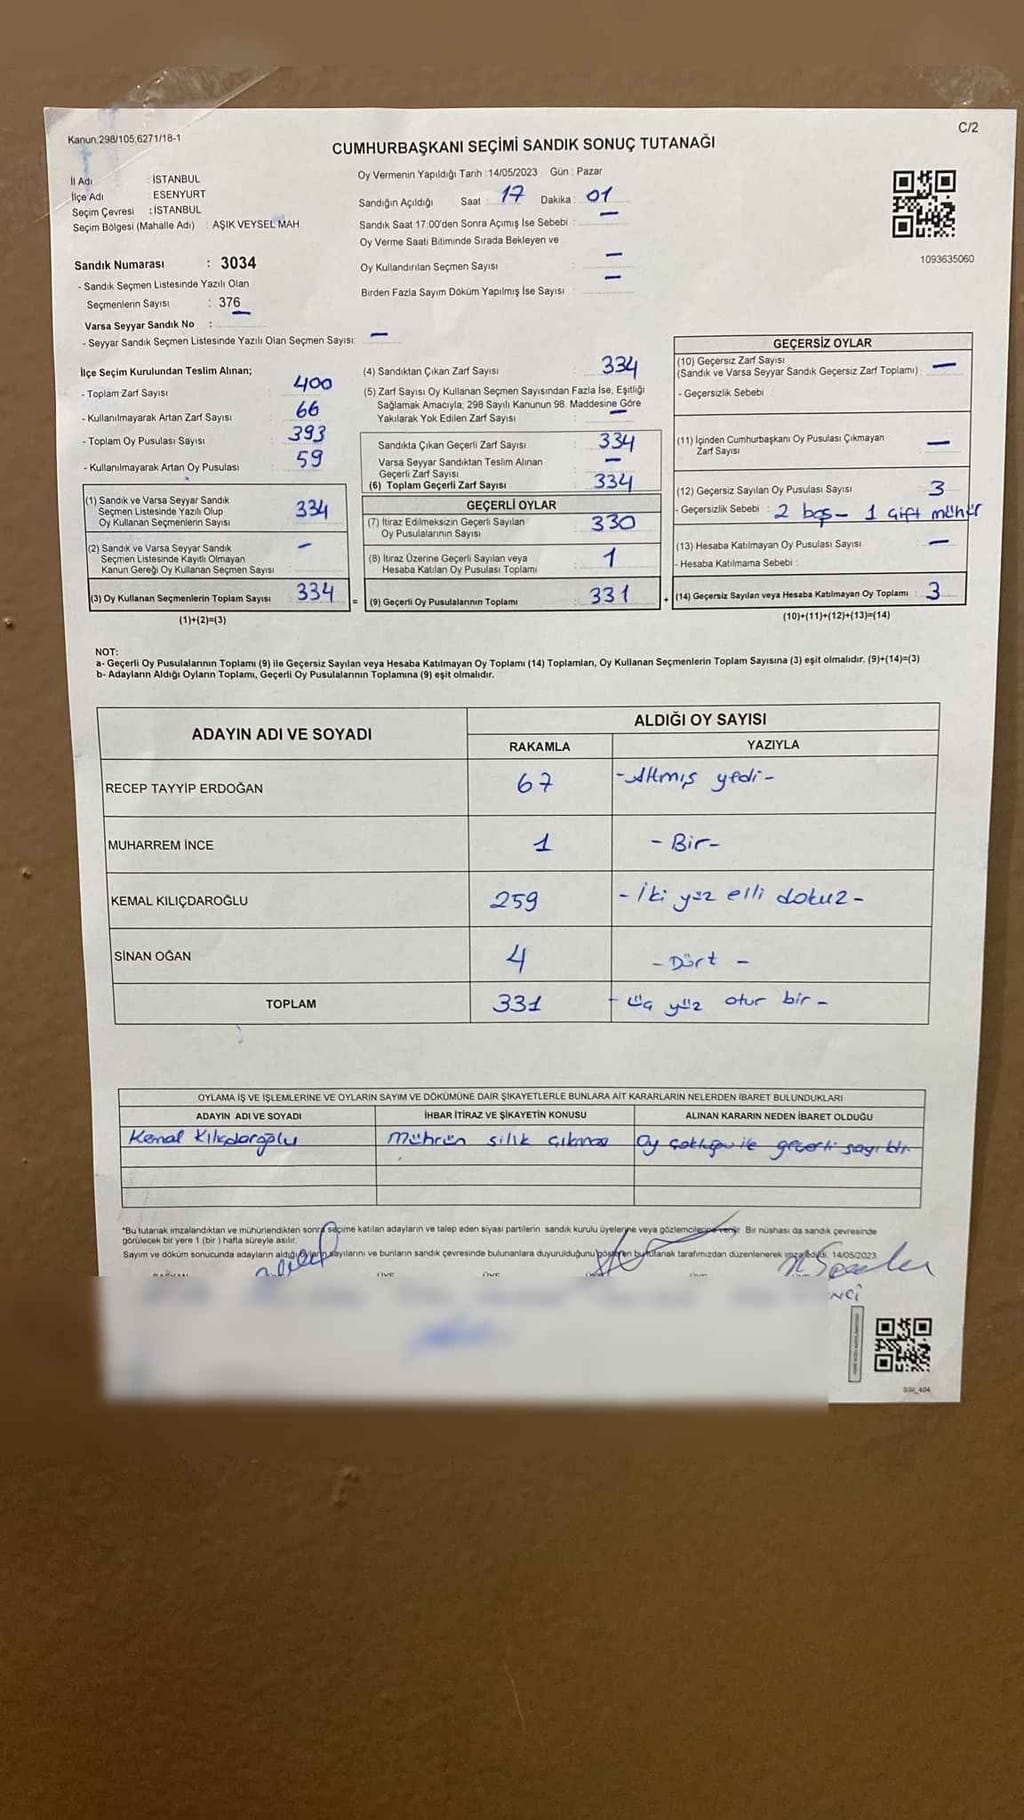 Kanun:298/105;6271/18-1
C/2
CUMHURBAŞKANI SEÇİMİ SANDIK SONUÇ TUTANAĞI
İl Adı : İSTANBUL
İlçe Adı : ESENYURT
Seçim Çevresi : İSTANBUL
Seçim Bölgesi (Mahalle Adı) : AŞIK VEYSEL MAH
Sandık Numarası : 3034
- Sandık Seçmen Listesinde Yazılı Olan
Seçmenlerin Sayısı : 376
Varsa Seyyar Sandık No :
- Seyyar Sandık Seçmen Listesinde Yazılı Olan Seçmen Sayısı: -
Oy Vermenin Yapıldığı Tarih :14/05/2023 Gün : Pazar
Sandığın Açıldığı Saat : 17 Dakika : 01
Sandık Saat 17:00'den Sonra Açımış İse Sebebi : -
Oy Verme Saati Bitiminde Sırada Bekleyen ve
Oy Kullandırılan Seçmen Sayısı : -
Birden Fazla Sayım Döküm Yapılmış İse Sayısı : -
1093635060
İlçe Seçim Kurulundan Teslim Alınan;
- Toplam Zarf Sayısı : 400
- Kullanılmayarak Artan Zarf Sayısı : 66
- Toplam Oy Pusulası Sayısı : 393
- Kullanılmayarak Artan Oy Pusulası : 59
(1) Sandık ve Varsa Seyyar Sandık
Seçmen Listesinde Yazılı Olup
Oy Kullanan Seçmenlerin Sayısı : 334
(2) Sandık ve Varsa Seyyar Sandık
Seçmen Listesinde Kayıtlı Olmayan
Kanun Gereği Oy Kullanan Seçmen Sayısı : -
(3) Oy Kullanan Seçmenlerin Toplam Sayısı : 334
(1)+(2)=(3)
(4) Sandıktan Çıkan Zarf Sayısı : 334
(5) Zarf Sayısı Oy Kullanan Seçmen Sayısından Fazla İse, Eşitliği
Sağlamak Amacıyla, 298 Sayılı Kanunun 98. Maddesine Göre
Yakılarak Yok Edilen Zarf Sayısı : -
Sandıkta Çıkan Geçerli Zarf Sayısı : 334
Varsa Seyyar Sandıktan Teslim Alınan
Geçerli Zarf Sayısı : -
(6) Toplam Geçerli Zarf Sayısı : 334
GEÇERLİ OYLAR
(7) İtiraz Edilmeksizin Geçerli Sayılan
Oy Pusulalarının Sayısı : 330
(8) İtiraz Üzerine Geçerli Sayılan veya
Hesaba Katılan Oy Pusulası Toplamı : 1
= (9) Geçerli Oy Pusulalarının Toplamı : 331 +
GEÇERSİZ OYLAR
(10) Geçersiz Zarf Sayısı
(Sandık ve Varsa Seyyar Sandık Geçersiz Zarf Toplamı) : -
- Geçersizlik Sebebi :
(11) İçinden Cumhurbaşkanı Oy Pusulası Çıkmayan
Zarf Sayısı : -
(12) Geçersiz Sayılan Oy Pusulası Sayısı : 3
- Geçersizlik Sebebi : 2 boş - 1 çift mühür
(13) Hesaba Katılmayan Oy Pusulası Sayısı : -
- Hesaba Katılmama Sebebi :
(14) Geçersiz Sayılan veya Hesaba Katılmayan Oy Toplamı : 3
(10)+(11)+(12)+(13)=(14)
NOT:
a- Geçerli Oy Pusulalarının Toplamı (9) ile Geçersiz Sayılan veya Hesaba Katılmayan Oy Toplamı (14) Toplamları, Oy Kullanan Seçmenlerin Toplam Sayısına (3) eşit olmalıdır. (9)+(14)=(3)
b- Adayların Aldığı Oyların Toplamı, Geçerli Oy Pusulalarının Toplamına (9) eşit olmalıdır.
ADAYIN ADI VE SOYADI
ALDIĞI OY SAYISI
RAKAMLA YAZIYLA
RECEP TAYYİP ERDOĞAN 67 -Altmış yedi-
MUHARREM İNCE 1 -Bir-
KEMAL KILIÇDAROĞLU 259 -İki yüz elli dokuz-
SİNAN OĞAN 4 -Dört -
TOPLAM 331 - Üç yüz otuz bir -
OYLAMA İŞ VE İŞLEMLERİNE VE OYLARIN SAYIM VE DÖKÜMÜNE DAİR ŞİKAYETLERLE BUNLARA AİT KARARLARIN NELERDEN İBARET BULUNDUKLARI
ADAYIN ADI VE SOYADI İHBAR İTİRAZ VE ŞİKAYETİN KONUSU ALINAN KARARIN NEDEN İBARET OLDUĞU
Kemal Kılıçdaroğlu Mührün silik çıkması Oy çokluğu ile geçerli sayıldı
"Bu tutanak imzalandıktan ve mühürlendikten sonra seçime katılan adayların ve talep eden siyasi partilerin sandık kurulu üyelerine veya gözlemcilerine verilir. Bir nüshası da sandık çevresinde
görülecek bir yere 1 (bir ) hafta süreyle asılır.
Sayım ve döküm sonucunda adayların aldığı oyların sayılarını ve bunların sandık çevresinde bulunanlara duyurulduğunu gösteren bu tutanak tarafımızdan düzenlenerek imza edildi. 14/05/2023